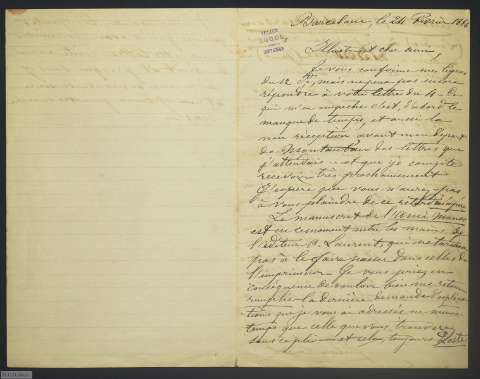 Barcelone, le 24 Février 188
Illustre et cher ami,
Je vous confirme mes lignes
du 12 mais ne puis pas encore
répondre à votre lettre du 4. Ce
qui m'en empêche c'est, d'abord le
manque de temps, et aussi la
non réception avant mon départ
de des lettres que
j'attendais et que je compte
recevoir très prochainement.
J'espère que vous n'aurez pas
à vous plaindre de ce retard
Le manuscrit de
est en ce moment entre les mains de
l'éditeur Laurent, qui ne tardera
pas à le faire passer dans celles de
l'imprimeur. Je vous prie, en
conséquence de vouloir bien me retour
la dernière demande
tions que je vous ai adressée en même
temps que celle que vous trouverez
sous ce pli et cela toujours